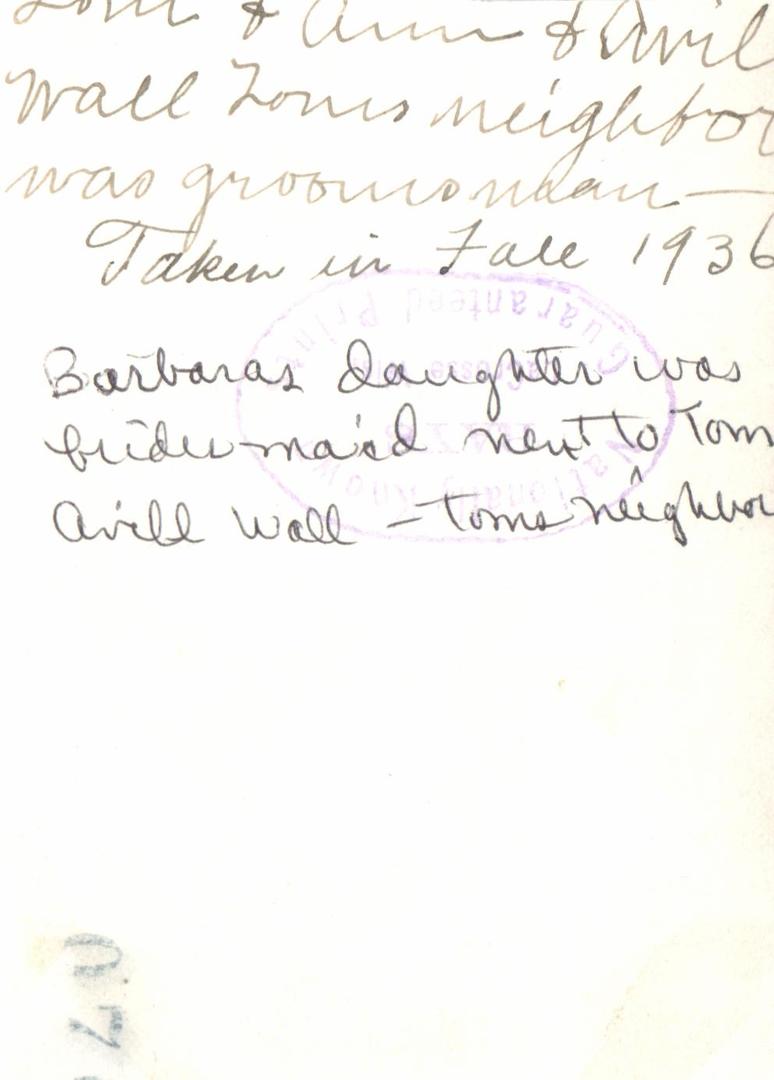 Tom & Ann & Avil
Wall Toms neighbor
was groomsman —
Taken in Fall 1936
Guaranteed Prints
Nationally Know
Barbaras daughter was
brides-maid next to Tom
Avill Wall – Toms neighbor